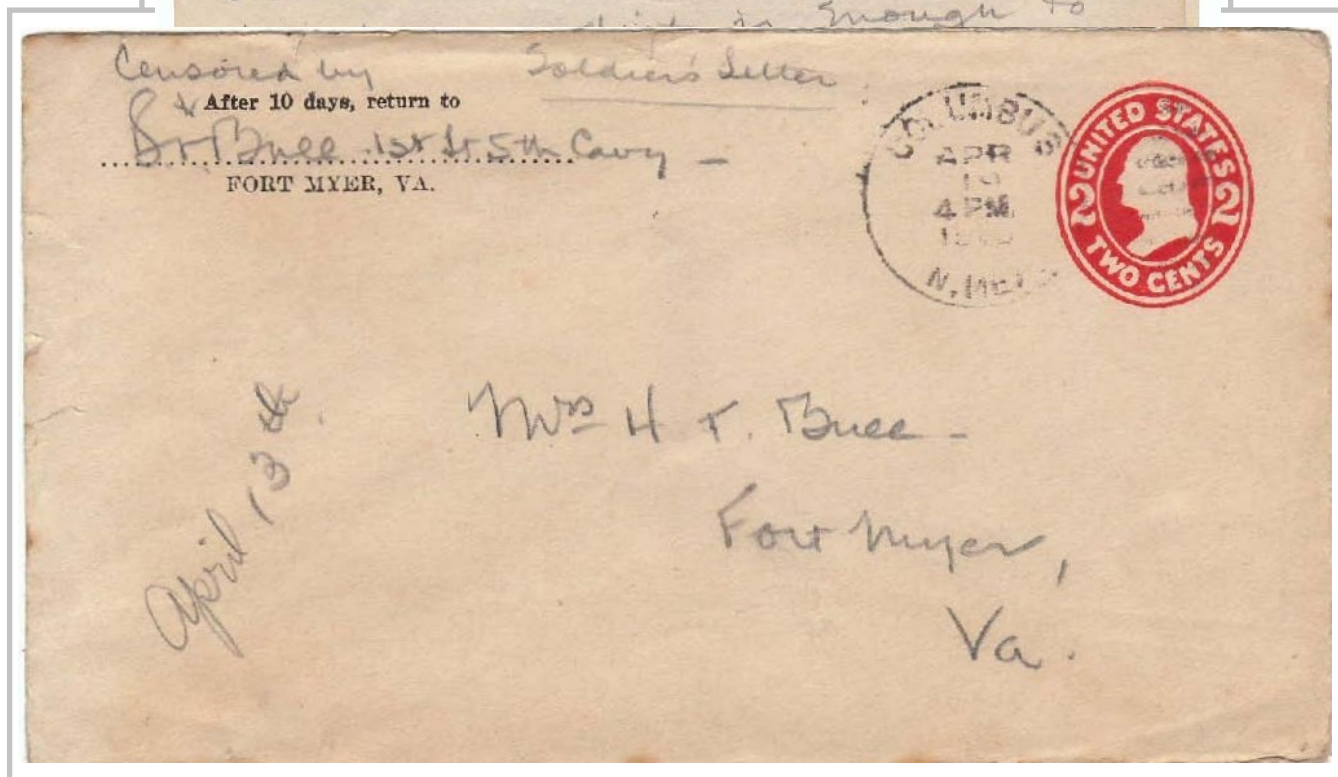 is Enough to
Censored by Soldier's Letter
After 10 days, return to
Bull 1st Lt 5th Cavy –
FORT MYER, VA.
COLUMBUS
APR
4 PM
N. MEX
UNITED STATES
2 2
TWO CENTS
Mrs H T. Bull –
Fort Myer,
Va.
April 13th